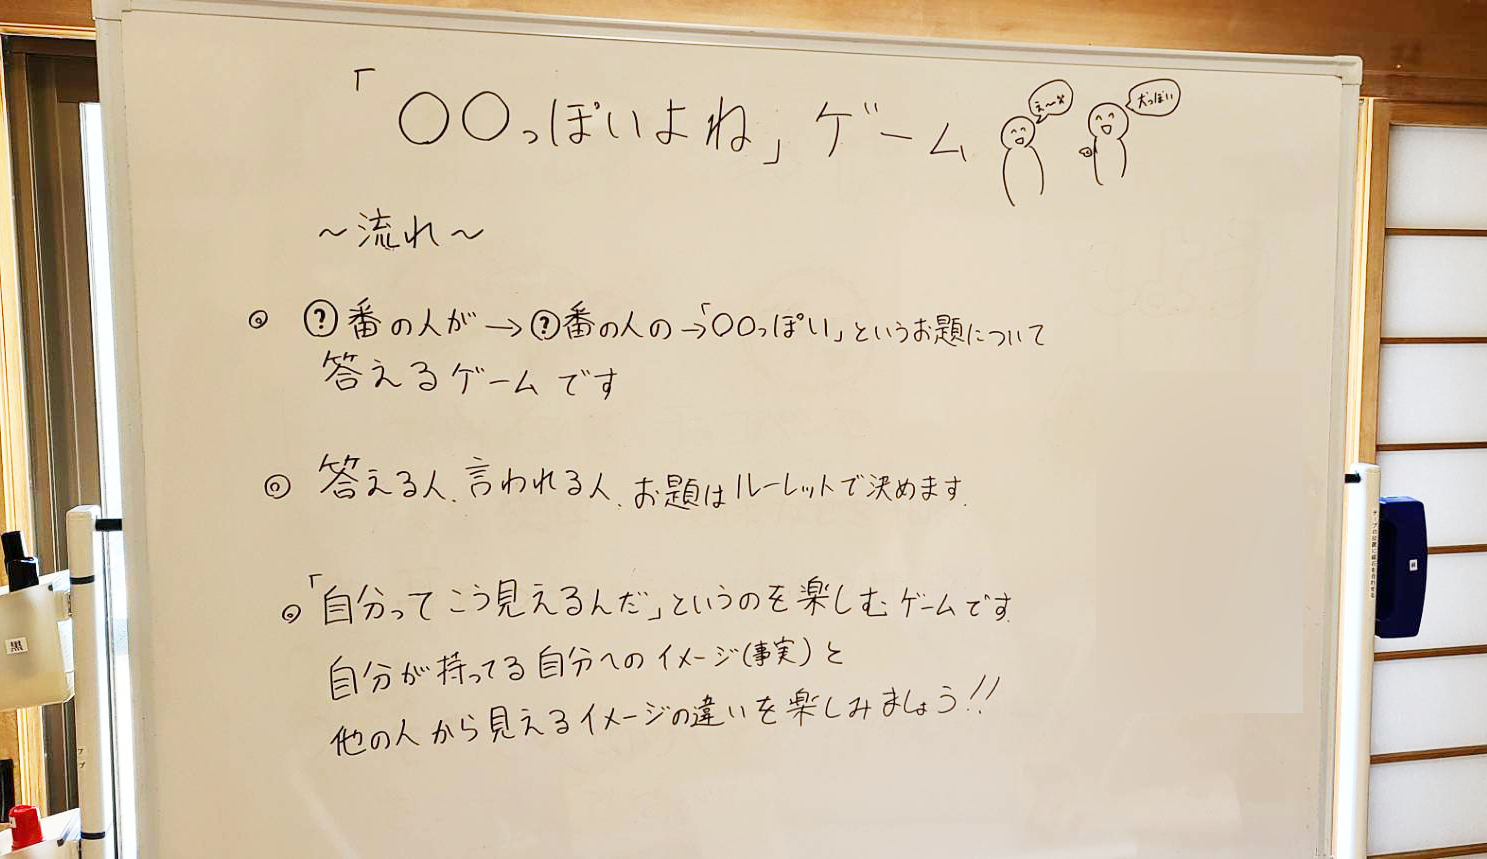 「〇〇っぽいよね」ゲーム
え〜笑
犬っぽい
〜流れ〜
◎ ?番の人が→?番の人の→「〇〇っぽい」というお題について
答えるゲームです
◎ 答える人、言われる人、お題はルーレットで決めます。
◎「自分ってこう見えるんだ」というのを楽しむゲームです。
自分が持ってる自分へのイメージ(事実)と
他の人から見えるイメージの違いを楽しみましょう!!
黒